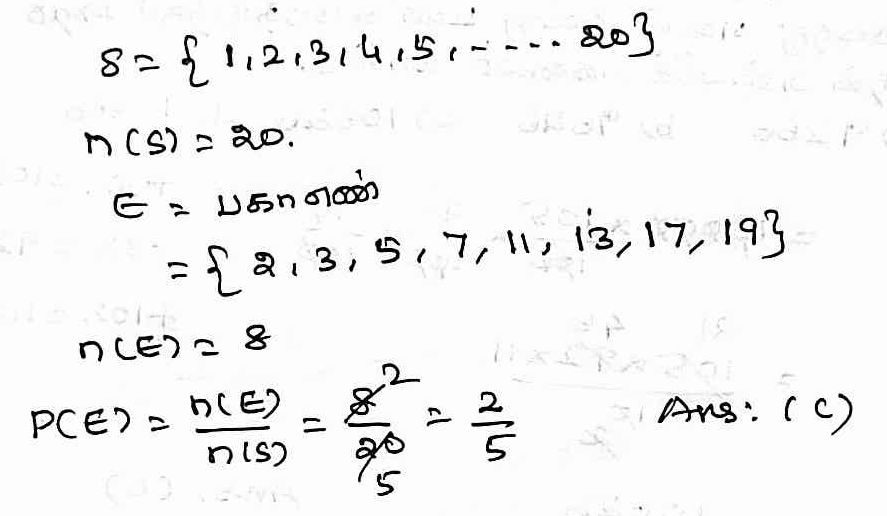 S = { 1, 2, 3, 4, 5, ----- 20}
n(S) = 20.
E = பகா எண்
= { 2, 3, 5, 7, 11, 13, 17, 19}
n(E) = 8
P(E) = n(E)/n(S) = 8/20 2/5 = 2/5 Ans: (C)